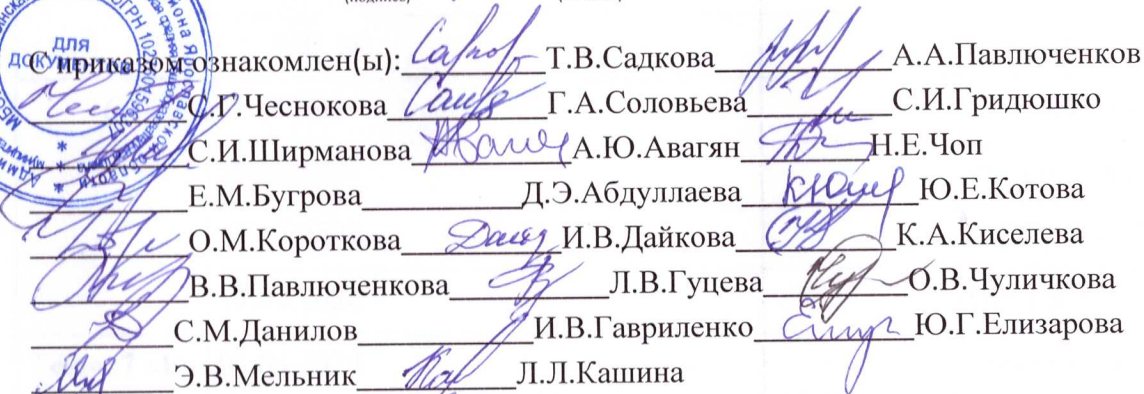 ДЛЯ
С приказом ознакомлен(ы):__________Т.В.Садкова____________А.А.Павлюченков
___________С.Г.Чеснокова___________Г.А.Соловьева__________С.И.Гридюшко
___________С.И.Ширманова___________А.Ю.Авагян_________Н.Е.Чоп
___________Е.М.Бугрова___________Д.Э.Абдуллаева__________Ю.Е.Котова
___________О.М.Короткова___________И.В.Дайкова___________К.А.Киселева
___________В.В.Павлюченкова___________Л.В.Гуцева__________О.В.Чуличкова
__________С.М.Данилов____________И.В.Гавриленко_________Ю.Г.Елизарова
__________Э.В.Мельник___________Л.Л.Кашина